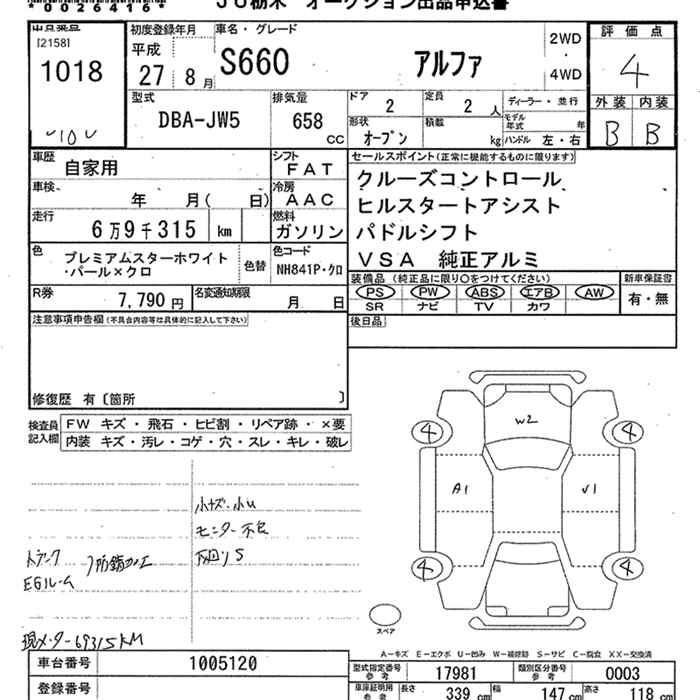 *0026416*
JU栃木 オークション出品申込書
出品番号
[2158]
1018
初度登録年月
平成
27 8月
車名・グレード
S660 アルファ
2WD
・
4WD
評価点
4
外装 内装
B B
型式
DBA-JW5
排気量
658
CC
ドア
2
定員
2 人
ディーラー・並行
モデル年式 年
形状
オープン
積載
kg
ハンドル 左・右
車歴
自家用
シフト
FAT
車検
年 月( 日)
冷房
AAC
走行
6万9千315 km
燃料
ガソリン
セールスポイント(正常に機能するものに限ります)
クルーズコントロール
ヒルスタートアシスト
パドルシフト
VSA 純正アルミ
色
プレミアムスターホワイト
・パール×クロ
色替
色コード
NH841P・クロ
R券
7,790円
名変通知期限
月 日
装備品 (純正品に限り○をつけてください)
PS PW ABS エアB AW
SR ナビ TV カワ
新車保証書
有・無
注意事項申告欄(不具合内容等は具体的に記入して下さい)
後日品
修復歴 有〔箇所 〕
検査員記入欄
FW キズ・飛石・ヒビ割・リペア跡・×要
内装 キズ・汚レ・コゲ・穴・スレ・キレ・破レ
小キズ・小U
モニター不良
下廻りS
トランク
EGルーム
防錆加工
現メーター69315KM
W2
4 4
A1 V1
4 4
スペア
A－キズ E－エクボ U－凹み W－補修跡 S－サビ C－腐食 XX－交換済
車台番号
1005120
登録番号
型式指定番号
参考
17981
類別区分番号
参考
0003
車庫証明用
参考
長さ 339 cm
幅 147 cm
高さ 118 cm